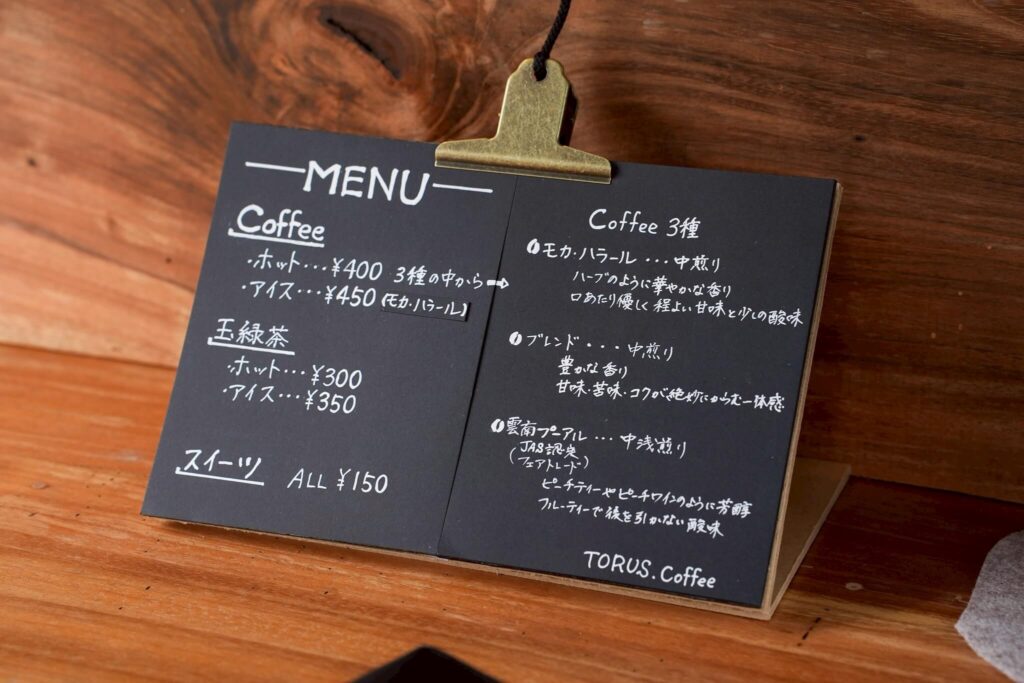 MENU
Coffee
・ホット・・・¥400 3種の中から→
・アイス・・・¥450 (モカ・ハラール)
玉緑茶
・ホット・・・¥300
・アイス・・・¥350
スイーツ ALL ¥150
Coffee 3種
モカ・ハラール・・・中煎り
ハーブのように華やかな香り
口あたり優しく程よい甘味と少しの酸味
ブレンド・・・中煎り
豊かな香り
甘味・苦味・コクが絶妙にからむ一体感
雲南プーアル・・・中浅煎り
JAS認定
(フェアトレード)
ピーチティーやピーチワインのように芳醇
フルーティーで後を引かない酸味
TORUS.Coffee